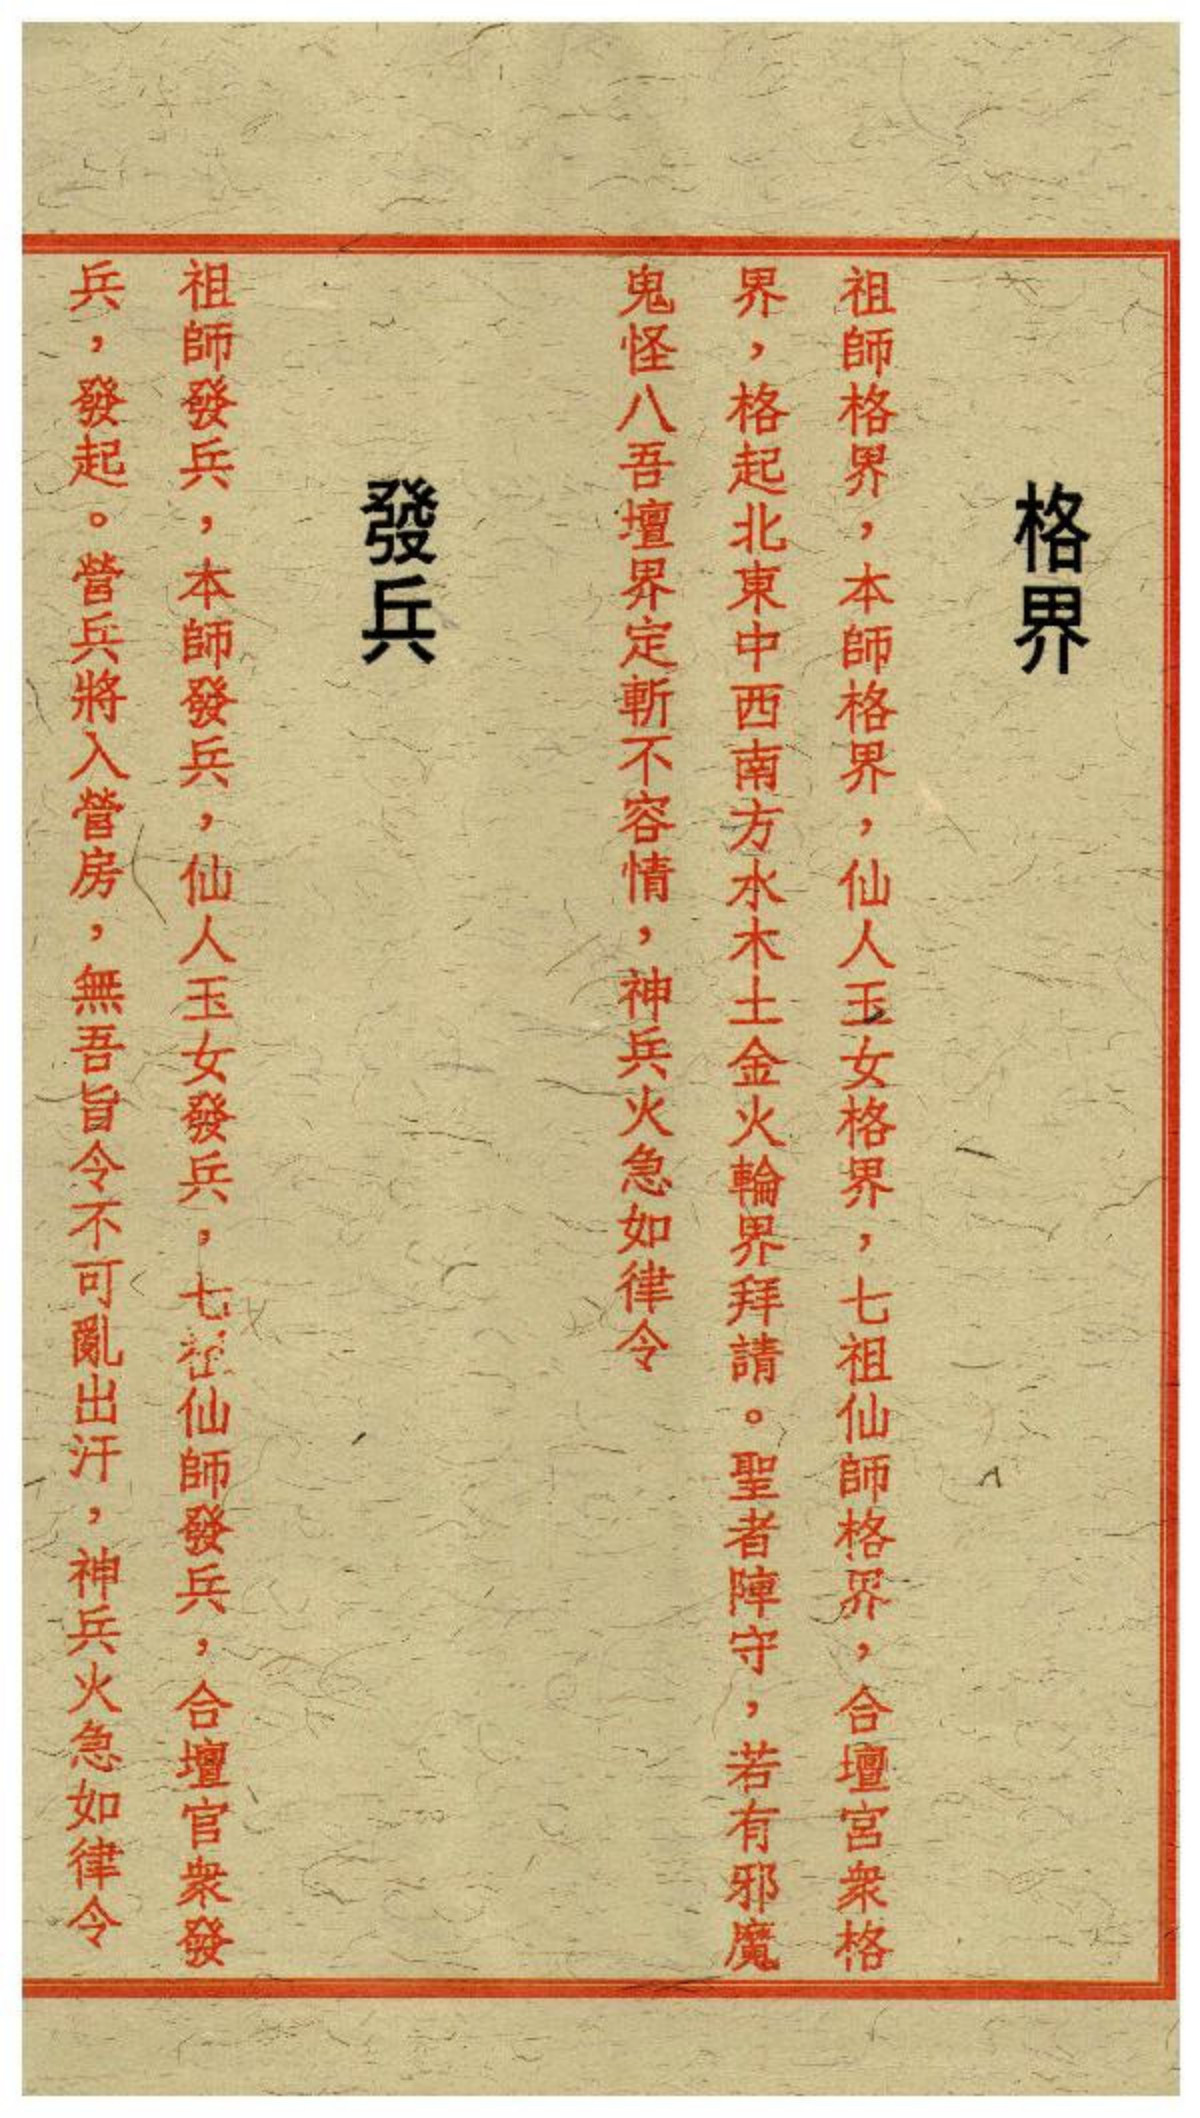 格界
祖師格界，本師格界，仙人玉女格界，七祖仙師格界，合壇宮衆格
界，格起北東中西南方水木土金火輪界拜請。聖者陣守，若有邪魔
鬼怪八吾壇界定斬不容情，神兵火急如律令
發兵
祖師發兵，本師發兵，仙人玉女發兵，七祖仙師發兵，合壇官衆發
兵，發起。營兵將入營房，無吾旨令不可亂出汗，神兵火急如律令